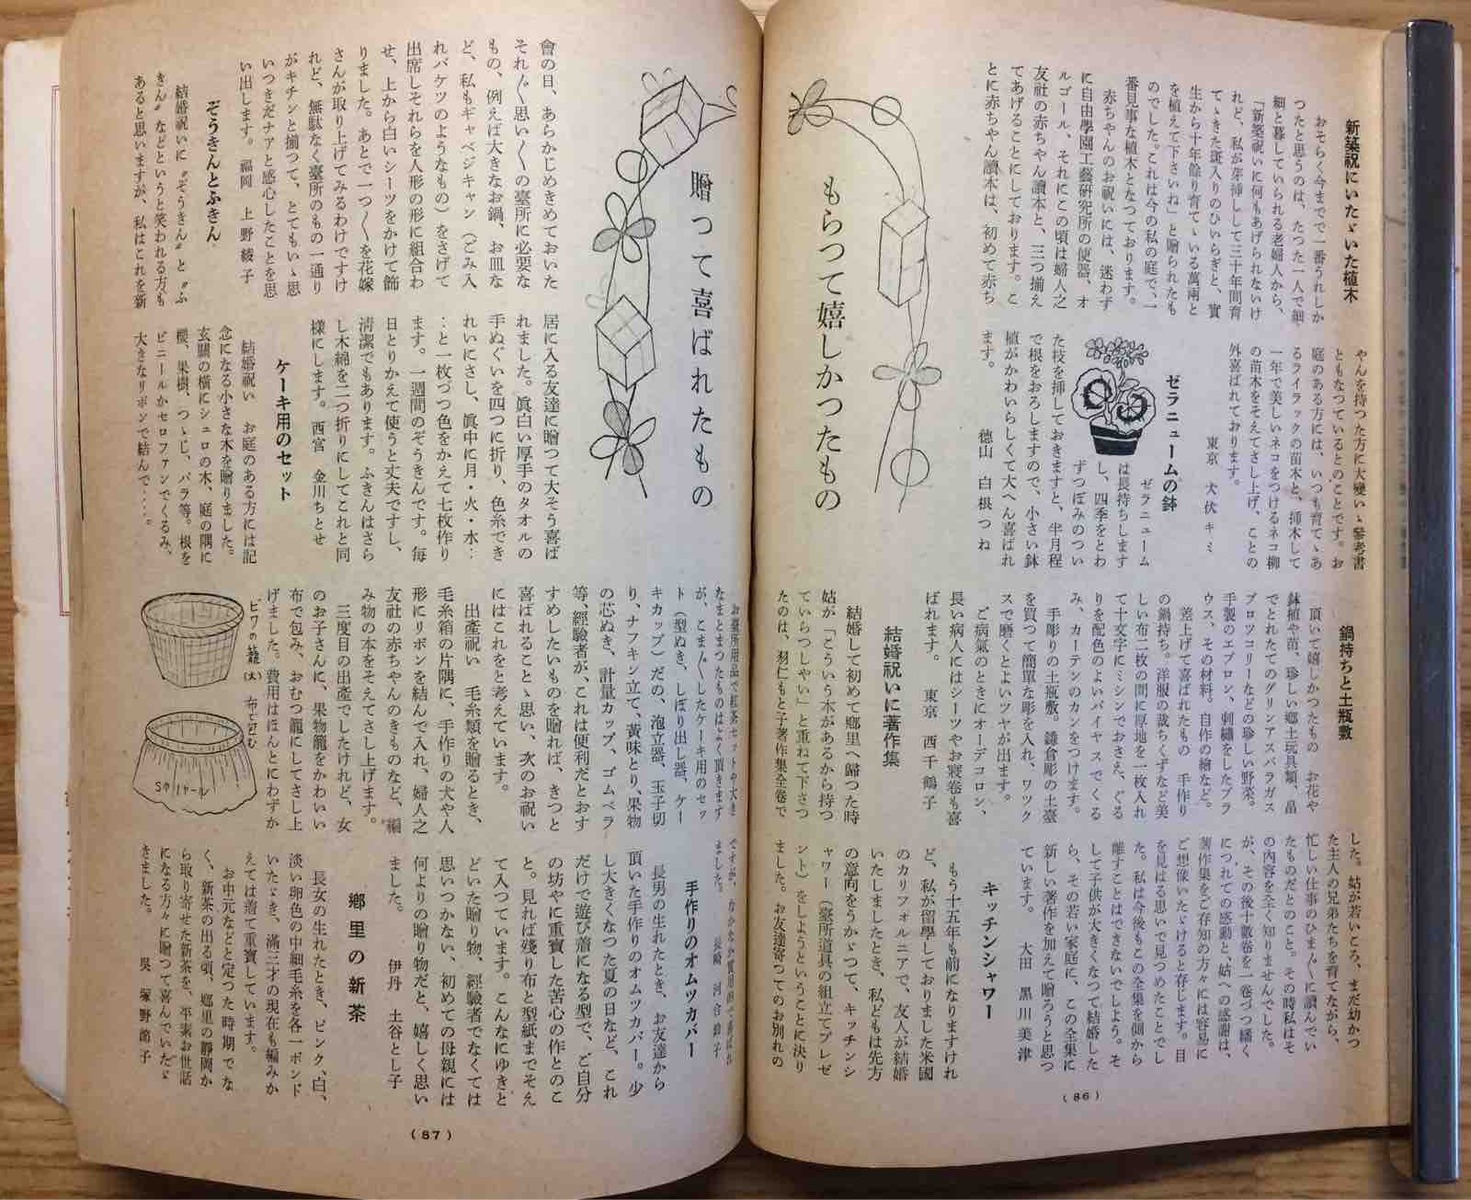 贈つて喜ばれたもの
もらつて嬉しかつたもの
新築祝にいたゞいた植木
おそらく今までで一番うれしか
つたと思うのは、たつた一人で細
細と暮していられる老婦人から、
「新築祝いに何もあげられないけ
れど、私が芽挿しして三十年間育
てゝきた斑入りのひいらぎと、實
生から十年餘り育てゝいる萬兩と
を植えて下さいね」と贈られたも
のでした。これは今の私の庭で、一
番見事な植木となつております。
赤ちやんのお祝いには、迷わず
に自由學園工藝研究所の便器、オ
ルゴール、それにこの頃は婦人之
友社の赤ちやん讀本と、三つ揃え
てあげることにしております。こ
とに赤ちやん讀本は、初めて赤ち
やんを持つた方に大變いゝ參考書
ともなつているとのことです。お
庭のある方には、いつも育てゝあ
るライラックの苗木と、挿木して
一年で美しいネコをつけるネコ柳
の苗木をそえてさし上げ、ことの
外喜ばれております。
東京 犬伏キミ
ゼラニュームの鉢
ゼラニューム
は長持ちします
し、四季をとわ
ずつぼみのつい
た枝を挿しておきますと、半月程
で根をおろしますので、小さい鉢
植がかわいらしくて大へん喜ばれ
ます。 徳山 白根つね
鍋持ちと土瓶敷
頂いて嬉しかつたもの お花や
鉢植や苗、珍しい郷土玩具類、畠
でとれたてのグリンアスパラガス
ブロツコリーなどの珍しい野菜。
手製のエプロン、刺繡をしたブラ
ウス、その材料。自作の繪など。
差上げて喜ばれたもの 手作り
の鍋持ち。洋服の裁ちくずなど美
しい布二枚の間に厚地を一枚入れ
て十文字にミシンでおさえ、ぐる
りを配色のよいバイヤスでくる
み、カーテンのカンをつけます。
手彫りの土瓶敷。鎌倉彫の土臺
を買つて簡單な彫を入れ、ワツク
スで磨くとよいツヤが出ます。
ご病氣のときにオーデコロン、
長い病人にはシーツやお寢卷も喜
ばれます。 東京 西千鶴子
結婚祝いに著作集
結婚して初めて鄕里へ歸つた時
姑が「こういう本があるから持つ
ていらつしやい」と重ねて下さつ
たのは、羽仁もと子著作集全卷で
した。姑が若いころ、まだ幼かつ
た主人の兄弟たちを育てながら、
忙しい仕事のひま〳〵に讀んでい
たものだとのこと。その時私はそ
の内容を全く知りませんでした。
が、その後十數卷を一卷づつ繙く
につれての感動と、姑への感謝は、
著作集をご存知の方々には容易に
ご想像いたゞけると存じます。目
を見はる思いで見つめたことでし
た。私は今後もこの全集を側から
離すことはできないでしよう。そ
して子供が大きくなつて結婚した
ら、その若い家庭に、この全集に
新しい著作を加えて贈ろうと思つ
ています。 大田 黒川美津
キッチンシャワー
もう十五年も前になりますけれ
ど、私が留學しておりました米國
のカリフォルニアで、友人が結婚
いたしましたとき、私どもは先方
の意向をうかゞつて、キッチンシ
ャワー（臺所道具の組立てプレゼ
ント）をしようということに決り
ました。お友達寄つてのお別れの
（86）
會の日、あらかじめきめておいた
それ〴〵思い〳〵の臺所に必要な
もの、例えば大きなお鍋、お皿な
ど、私もギャベジキャン（ごみ入
れバケツのようなもの）をさげて
出席しそれらを人形の形に組合わ
せ、上から白いシーツをかけて飾
りました。あとで一つ〳〵を花嫁
さんが取り上げてみるわけですけ
れど、無駄なく臺所のもの一通り
がキチンと揃つて、とてもいゝ思
いつきだナアと感心したことを思
い出します。 福岡 上野綾子
ぞうきんとふきん
結婚祝いに〝ぞうきん〟と〝ふ
きん〟などというと笑われる方も
あると思いますが、私はこれを新
居に入る友達に贈つて大そう喜ば
れました。眞白い厚手のタオルの
手ぬぐいを四つに折り、色糸でき
れいにさし、眞中に月・火・水：
：と一枚づつ色をかえて七枚作り
ます。一週間のぞうきんです。毎
日とりかえて使うと丈夫ですし、
淸潔でもあります。ふきんはさら
し木綿を二つ折りにしてこれと同
樣にします。西宮 金川ちとせ
ケーキ用のセット
結婚祝い お庭のある方には記
念になる小さな木を贈りました。
玄關の橫にシュロの木、庭の隅に
櫻、果樹、つゝじ、バラ等。根を
ビニールかセロファンでくるみ、
大きなリボンで結んで・・・・。
お臺所用品で紅茶セットや大き
なまとまつたものはよく頂きます
が、こま〴〵したケーキ用のセッ
ト（型ぬき、しぼり出し器、ケー
キカップ）だの、泡立器、玉子切
り、ナフキン立て、黄味とり、果物
の芯ぬき、計量カップ、ゴムベラ
等、經驗者が、これは便利だとおす
すめしたいものを贈れば、きつと
喜ばれることゝ思い、次のお祝い
にはこれをと考えています。
出產祝い 毛糸類を贈るとき、
毛糸箱の片隅に、手作りの犬や人
形にリボンを結んで入れ、婦人之
友社の赤ちやんのきものなど、編
み物の本をそえてさし上げます。
三度目の出產でしたけれど、女
のお子さんに、果物籠をかわいい
布で包み、おむつ籠にしてさし上
げました。費用はほんとにわずか
ビワの籠(大)
布で包む
ですが、なかなか實用的で喜ばれ
ました。 長崎 河合
手作りのオムツカバー
長男の生れたとき、お友達から
頂いた手作りのオムツカバー。少
し大きくなつた夏の日など、これ
だけで遊び着になる型で、ご自分
の坊やに重寶した苦心の作とのこ
と。見れば殘り布と型紙までそえ
て入つています。こんなにゆきと
どいた贈り物、經驗者でなくては
思いつかない、初めての母親には
何よりの贈り物だと、嬉しく思い
ました。 伊丹 土谷とし子
鄕里の新茶
長女の生れたとき、ピンク、白、
淡い卵色の中細毛糸を各一ポンド
いたゞき、滿三才の現在も編みか
えては着て重寶しています。
お中元などと定つた時期でな
く、新茶の出る頃、鄕里の靜岡か
ら取り寄せた新茶を、平素お世話
になる方々に贈つて喜んでいたゞ
きました。 呉 塚野 子
（87）